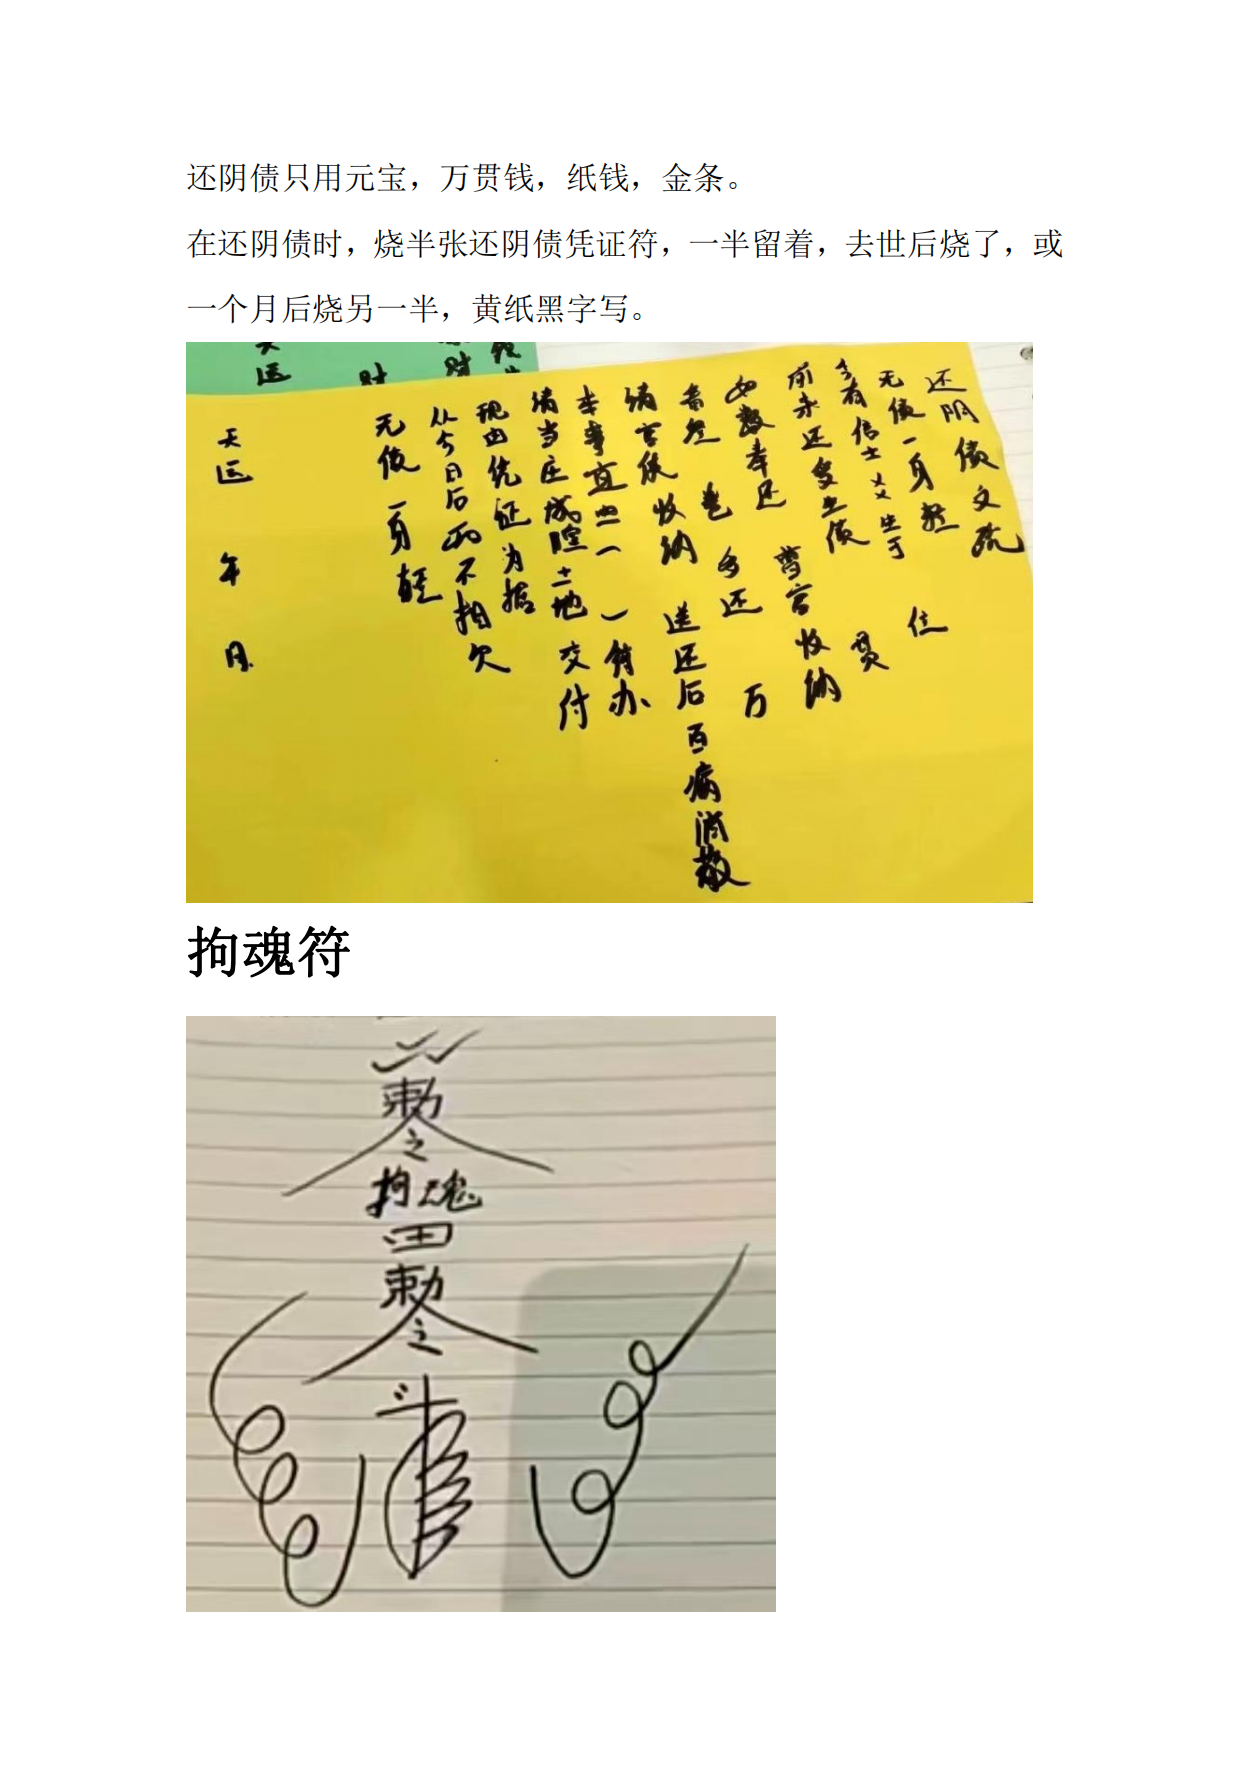 还阴债只用元宝，万贯钱，纸钱，金条。
在还阴债时，烧半张还阴债凭证符，一半留着，去世后烧了，或
一个月后烧另一半，黄纸黑字写。
天运
财
财
还阴债文疏
无债一身轻
今有信士 X X 生于 位
前未还受生债 贯
如数奉还 尊官收纳
各还 万
请官侯收纳 送还后百病消散
本事宜 一 一 待办
请当庄城隍土地 交付
现由凭证为据
从今日后两不相欠
无债一身轻
天运 年 月
拘魂符
敕
令
拘魂
敕
令
斗